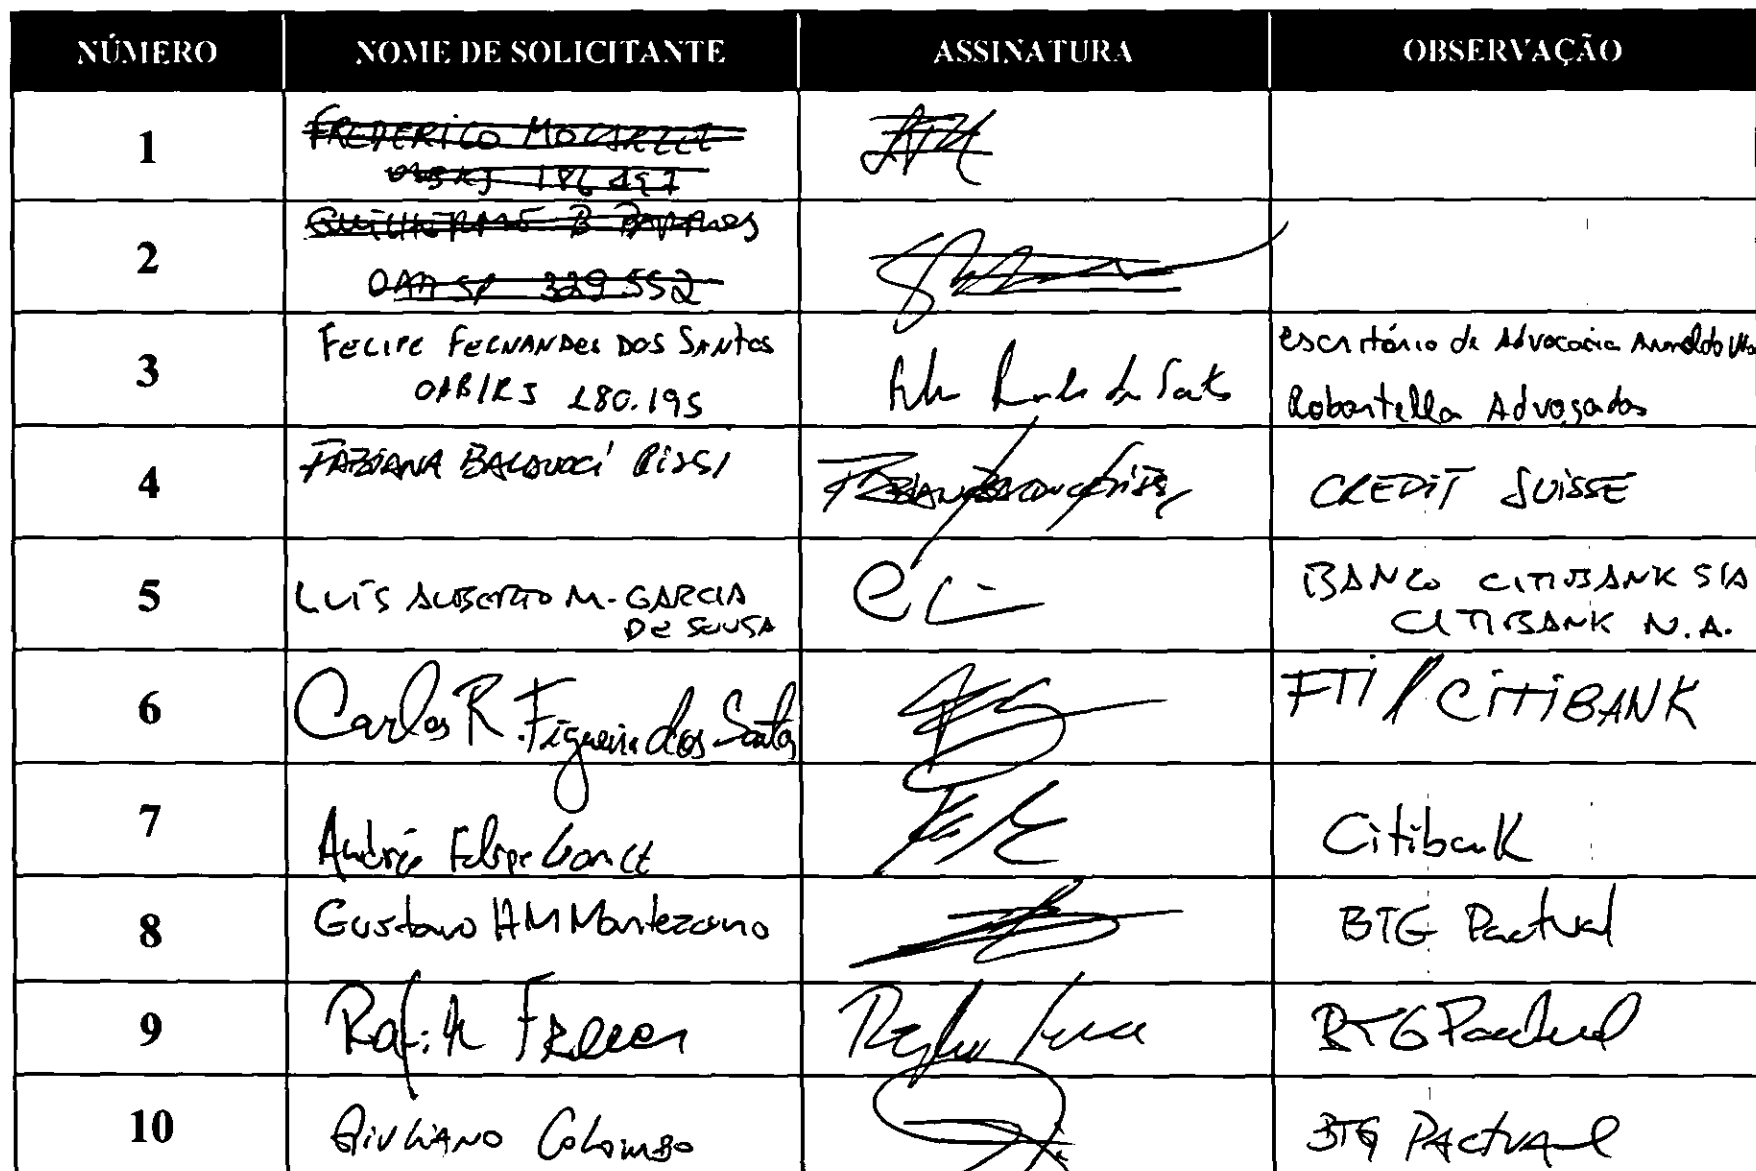 NÚMERO NOME DE SOLICITANTE ASSINATURA OBSERVAÇÃO
1 FREDERICO
186.497
2 GUILHERME B
OAB SP 329.552
3 FELIPE FERNANDES DOS SANTOS
OAB/RJ 180.195
Escritório de Advocacia Arnoldo
Robortella Advogados
4 FABIANA BALDUCCI PISSI CREDIT SUISSE
5 LUÍS ALBERTO M. GARCIA
DE SOUSA
BANCO CITIBANK S/A
CITIBANK N.A.
6 Carlos R. Figueira dos Santos FTI / CITIBANK
7 André Felipe Citibank
8 Gustavo HM Montezano BTG Pactual
9 BTG Pactual
10 GIULIANO Colombo BTG PACTUAL